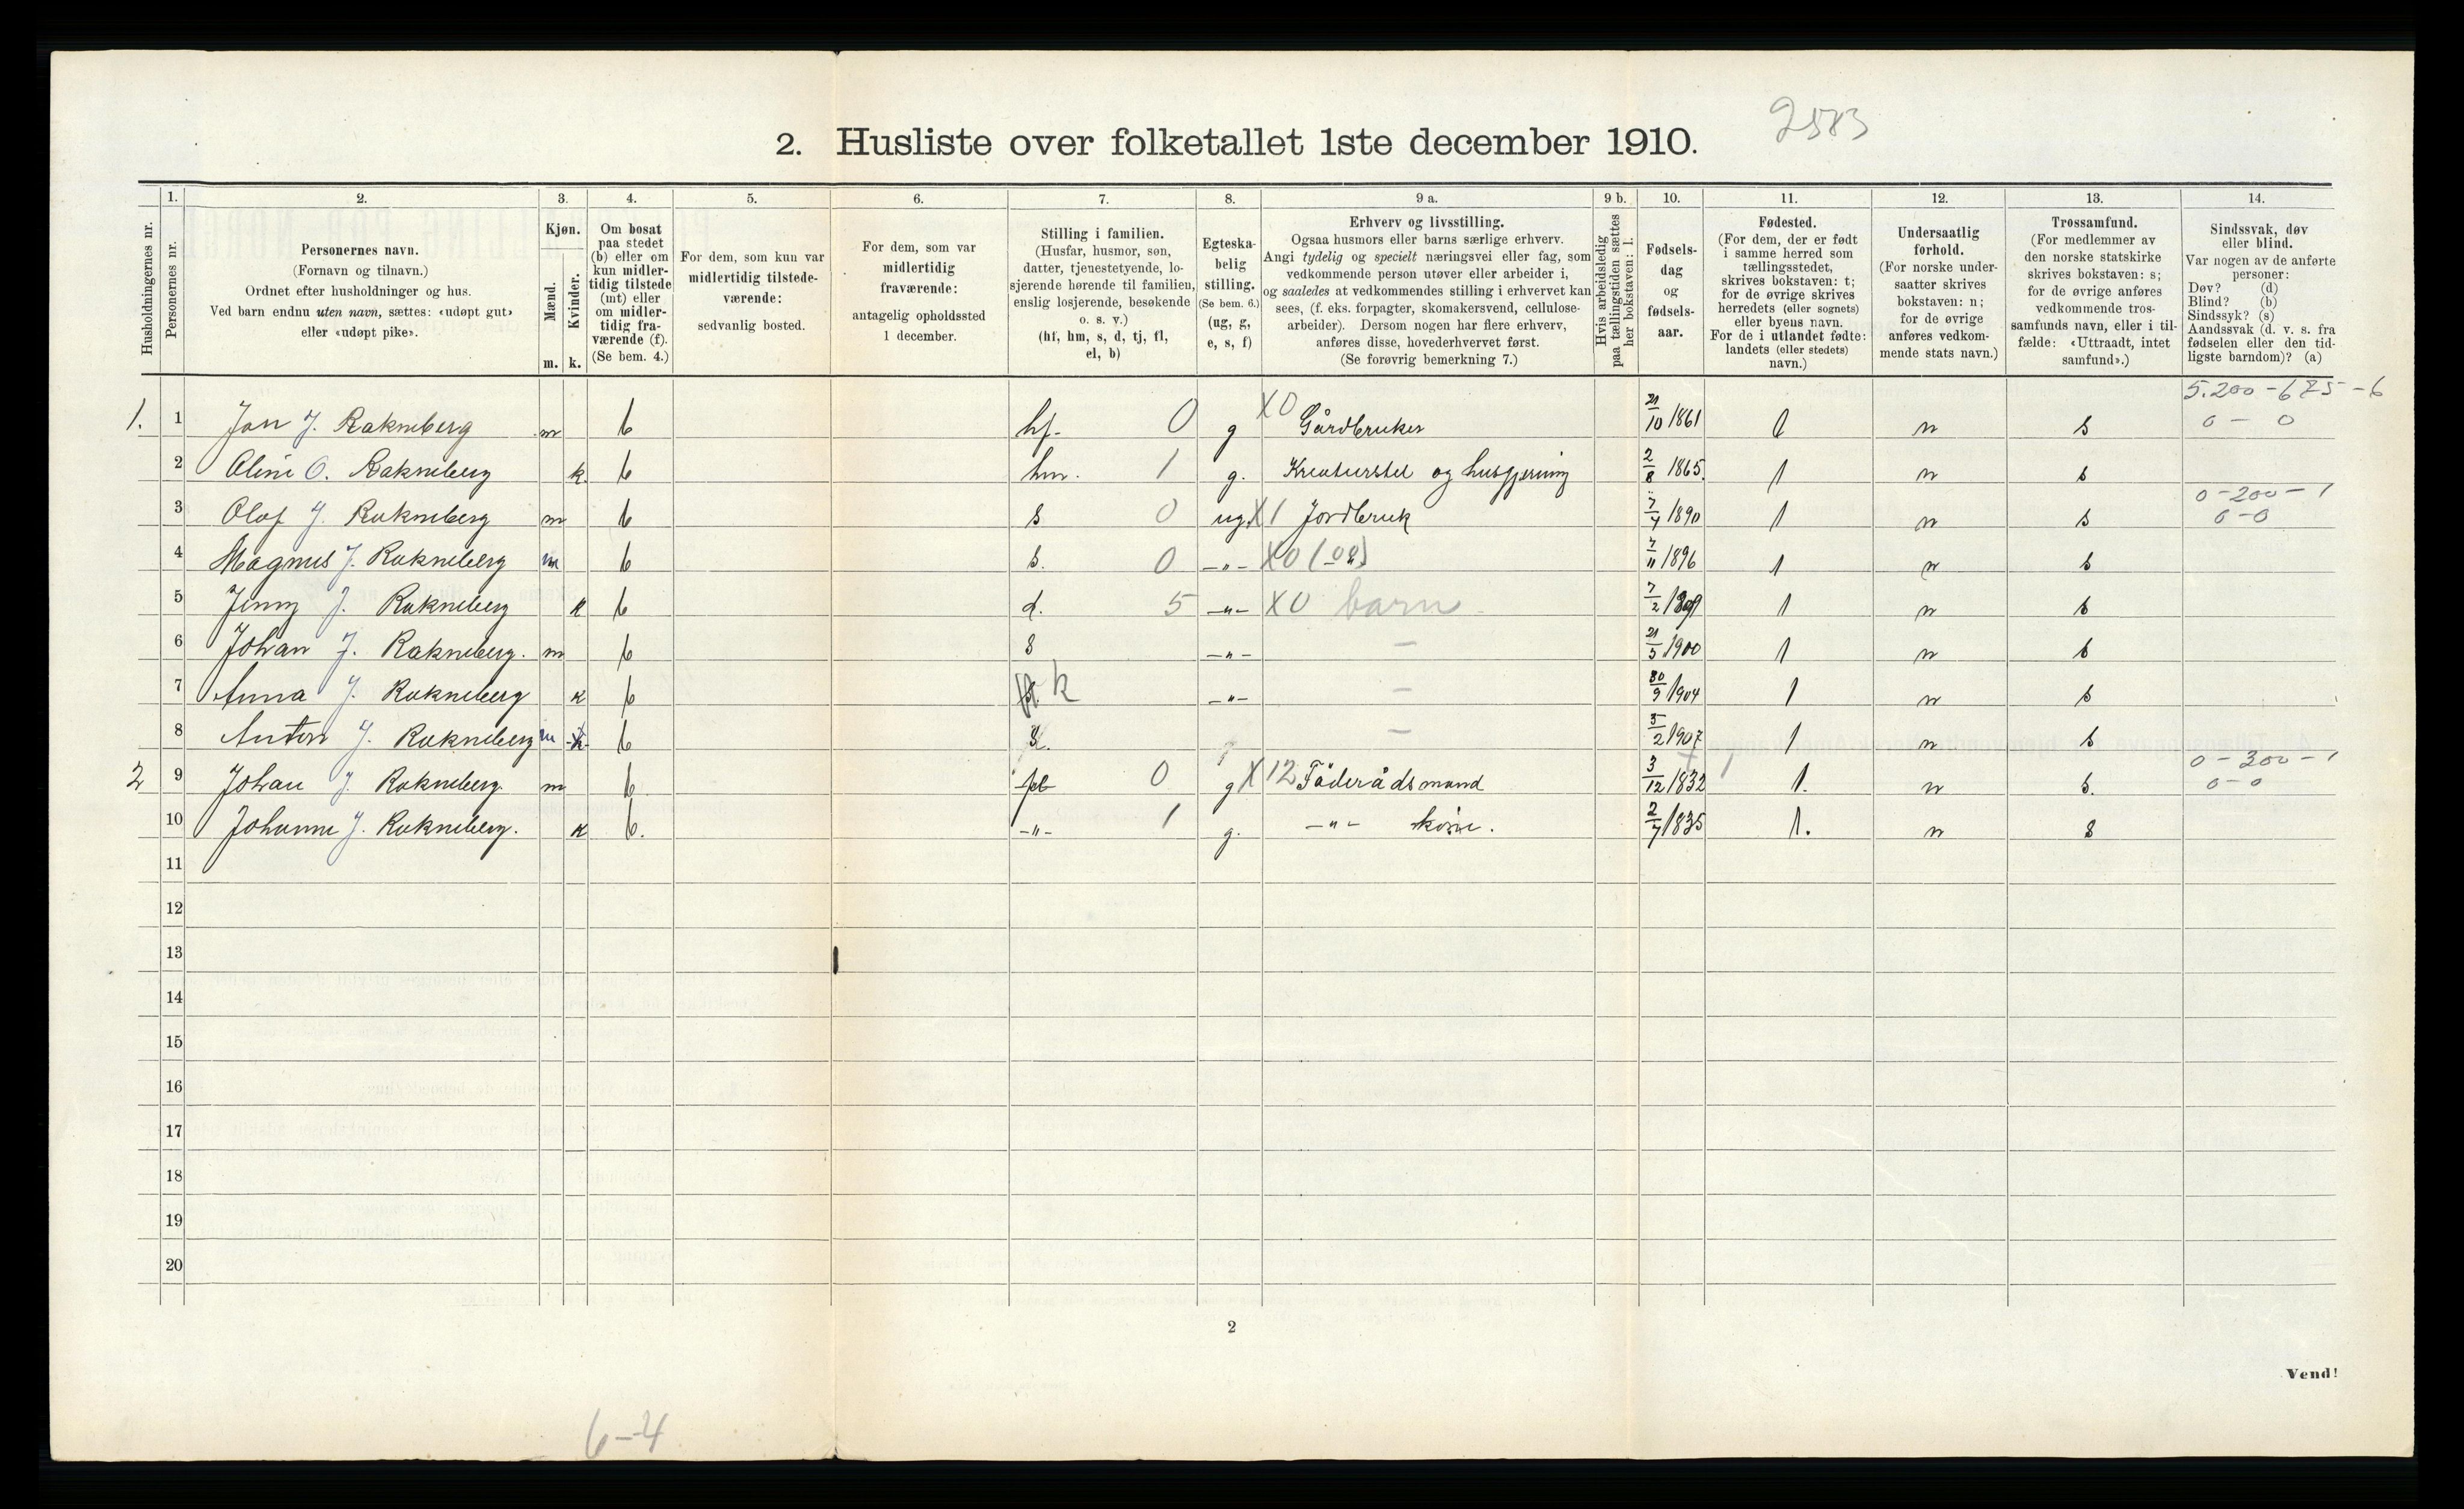 2583
2. Husliste over folketallet 1ste december 1910.
Husholdningernes nr.
1. Personernes nr.
2. Personernes navn.
(Fornavn og tilnavn.)
Ordnet efter husholdninger og hus.
Ved barn endnu uten navn, sættes: «udøpt gut»
eller «udøpt pike».
3. Kjøn.
Mænd. m.
Kvinder. k.
4. Om bosat
paa stedet
(b) eller om
kun midler-
tidig tilstede
(mt) eller
om midler-
tidig fra-
værende (f).
(Se bem. 4.)
5. For dem, som kun var
midlertidig tilstede-
værende:
sedvanlig bosted.
6. For dem, som var
midlertidig
fraværende:
antagelig opholdssted
1 december.
7. Stilling i familien.
(Husfar, husmor, søn,
datter, tjenestetyende, lo-
sjerende hørende til familien,
enslig losjerende, besøkende
o. s. v.)
(hf, hm, s, d, tj, fl,
el, b)
8. Egteska-
belig
stilling.
(Se bem. 6.)
(ug, g,
e, s, f)
9 a. Erhverv og livsstilling.
Ogsaa husmors eller barns særlige erhverv.
Angi tydelig og specielt næringsvei eller fag, som
vedkommende person utøver eller arbeider i,
og saaledes at vedkommendes stilling i erhvervet kan
sees, (f. eks. forpagter, skomakersvend, cellulose-
arbeider). Dersom nogen har flere erhverv,
anføres disse, hovederhvervet først.
(Se forøvrig bemerkning 7.)
9 b. Hvis arbeidsledig
paa tællingstiden sættes
her bokstaven: l.
10. Fødsels-
dag
og
fødsels-
aar.
11. Fødested.
(For dem, der er født
i samme herred som
tællingsstedet,
skrives bokstaven: t;
for de øvrige skrives
herredets (eller sognets)
eller byens navn.
For de i utlandet fødte:
landets (eller stedets)
navn.)
12. Undersaatlig
forhold.
(For norske under-
saatter skrives
bokstaven: n;
for de øvrige
anføres vedkom-
mende stats navn.)
13. Trossamfund.
(For medlemmer av
den norske statskirke
skrives bokstaven: s;
for de øvrige anføres
vedkommende tros-
samfunds navn, eller i til-
fælde: «Uttraadt, intet
samfund».)
14. Sindssvak, døv
eller blind.
Var nogen av de anførte
personer:
Døv? (d)
Blind? (b)
Sindssyk? (s)
Aandssvak (d. v. s. fra
fødselen eller den tid-
ligste barndom)? (a)
5.200-675-6
1. 1 Jon J. Rakneberg m b hf. 0 g X0 Gårdbruker 21/10 1861 t n s 0-0
2 Oline O. Rakneberg k b hm. 1 g. Kreaturstel og husgjerning 2/8 1865 t n s
3 Olof J. Rakneberg m b s 0 ug. X1 Jordbruk 7/4 1890 t n s 0-200-1 0-0
4 Magnus J. Rakneberg m b s. 0 -"- X0 7/11 1896 t n s
5 Jenny J. Rakneberg k b d. 5 -"- X0 barn 7/2 t n s
6 Johan J. Rakneberg. m b s -"- - 21/5 1900 t n s
7 Anna J. Rakneberg k b k -"- - 30/9 1904 t n s
8 Anton J. Rakneberg m k b s. - 5/2 1907 t n s
2 9 Johan J. Rakneberg. m b fl 0 g X12 Föderådsmand 3/12 1832 t. n s. 0-300-1 0-0
10 Johanne J. Rakneberg. k b. -"- 1 g. -"- kone. 2/7 1835 t. n s
11
12
13
14
15
16
17
18
19
20
2
Vend!
6-4